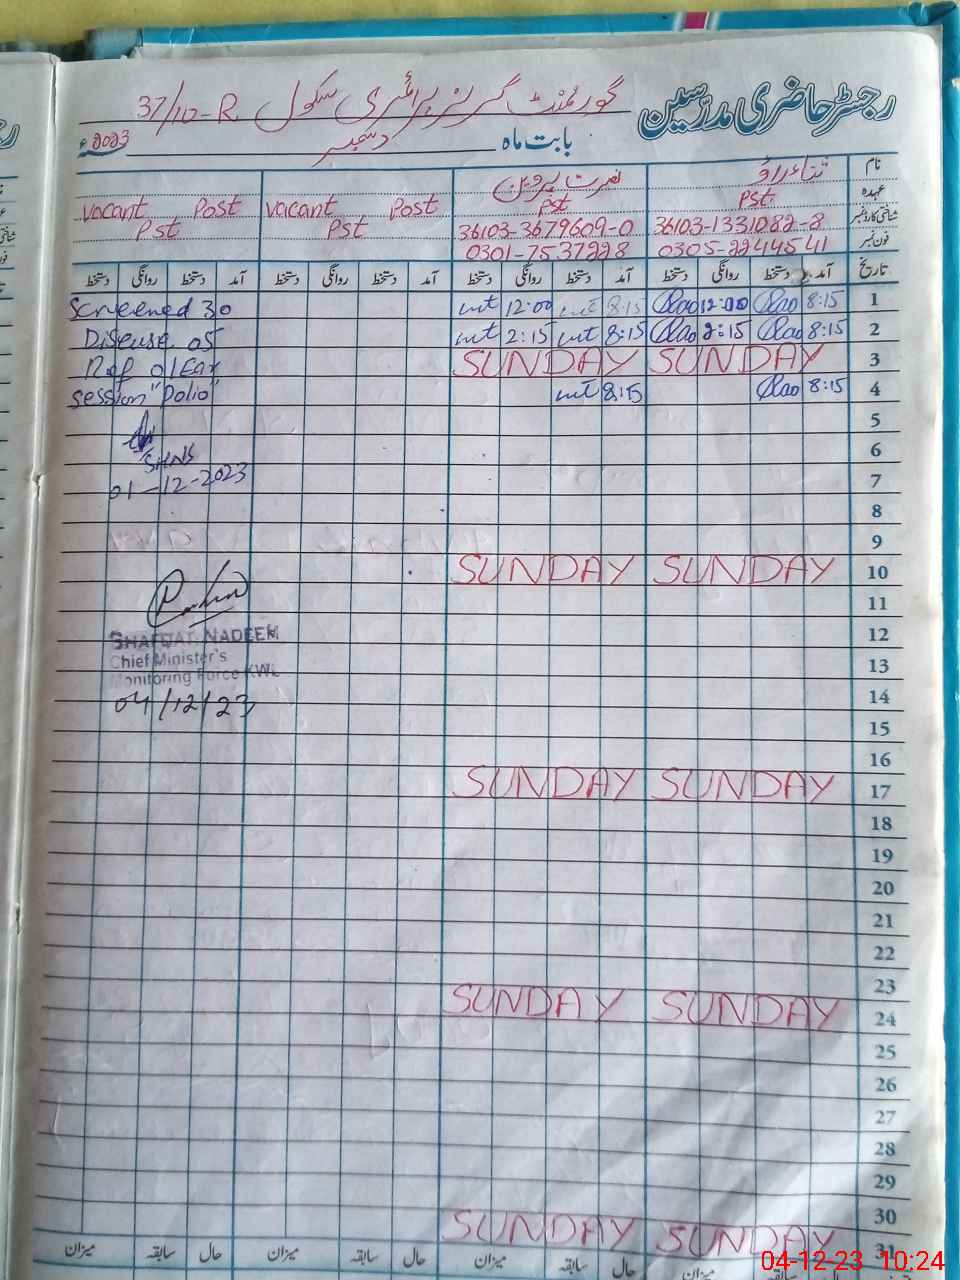 رجسٹر حاضری مدرسین
گورنمنٹ گرلز پرائمری سکول 37/10-R
بابت ماہ دسمبر 2023ء
نام ثناء راؤ نصرت پروین
عہدہ Pst Pst vacant Post vacant Post
شناختی کارڈ نمبر 36103-1331082-8 36103-3679609-0 Pst Pst
فون نمبر 0305-2244541 0301-7537228
تاریخ آمد دستخط روانگی دستخط آمد دستخط روانگی دستخط آمد دستخط روانگی دستخط آمد دستخط روانگی دستخط
1 8:15 Rao 12:00 Rao 8:15 12:00 Screened 30
2 8:15 Rao 2:15 Rao 8:15 2:15 Disease 05
3 SUNDAY SUNDAY Ref 01 Ear
4 8:15 Rao 8:15 session "Polio"
5
6 SHNS
7 01-12-2023
8
9
10 SUNDAY SUNDAY
11
12 SHAFQAT NADEEM
13 Chief Minister's
Monitoring Force KWL
14 04/12/23
15
16
17 SUNDAY SUNDAY
18
19
20
21
22
23
24 SUNDAY SUNDAY
25
26
27
28
29
30
31 SUNDAY SUNDAY
حال سابقہ میزان حال سابقہ میزان حال سابقہ میزان
04-12-23 10:24